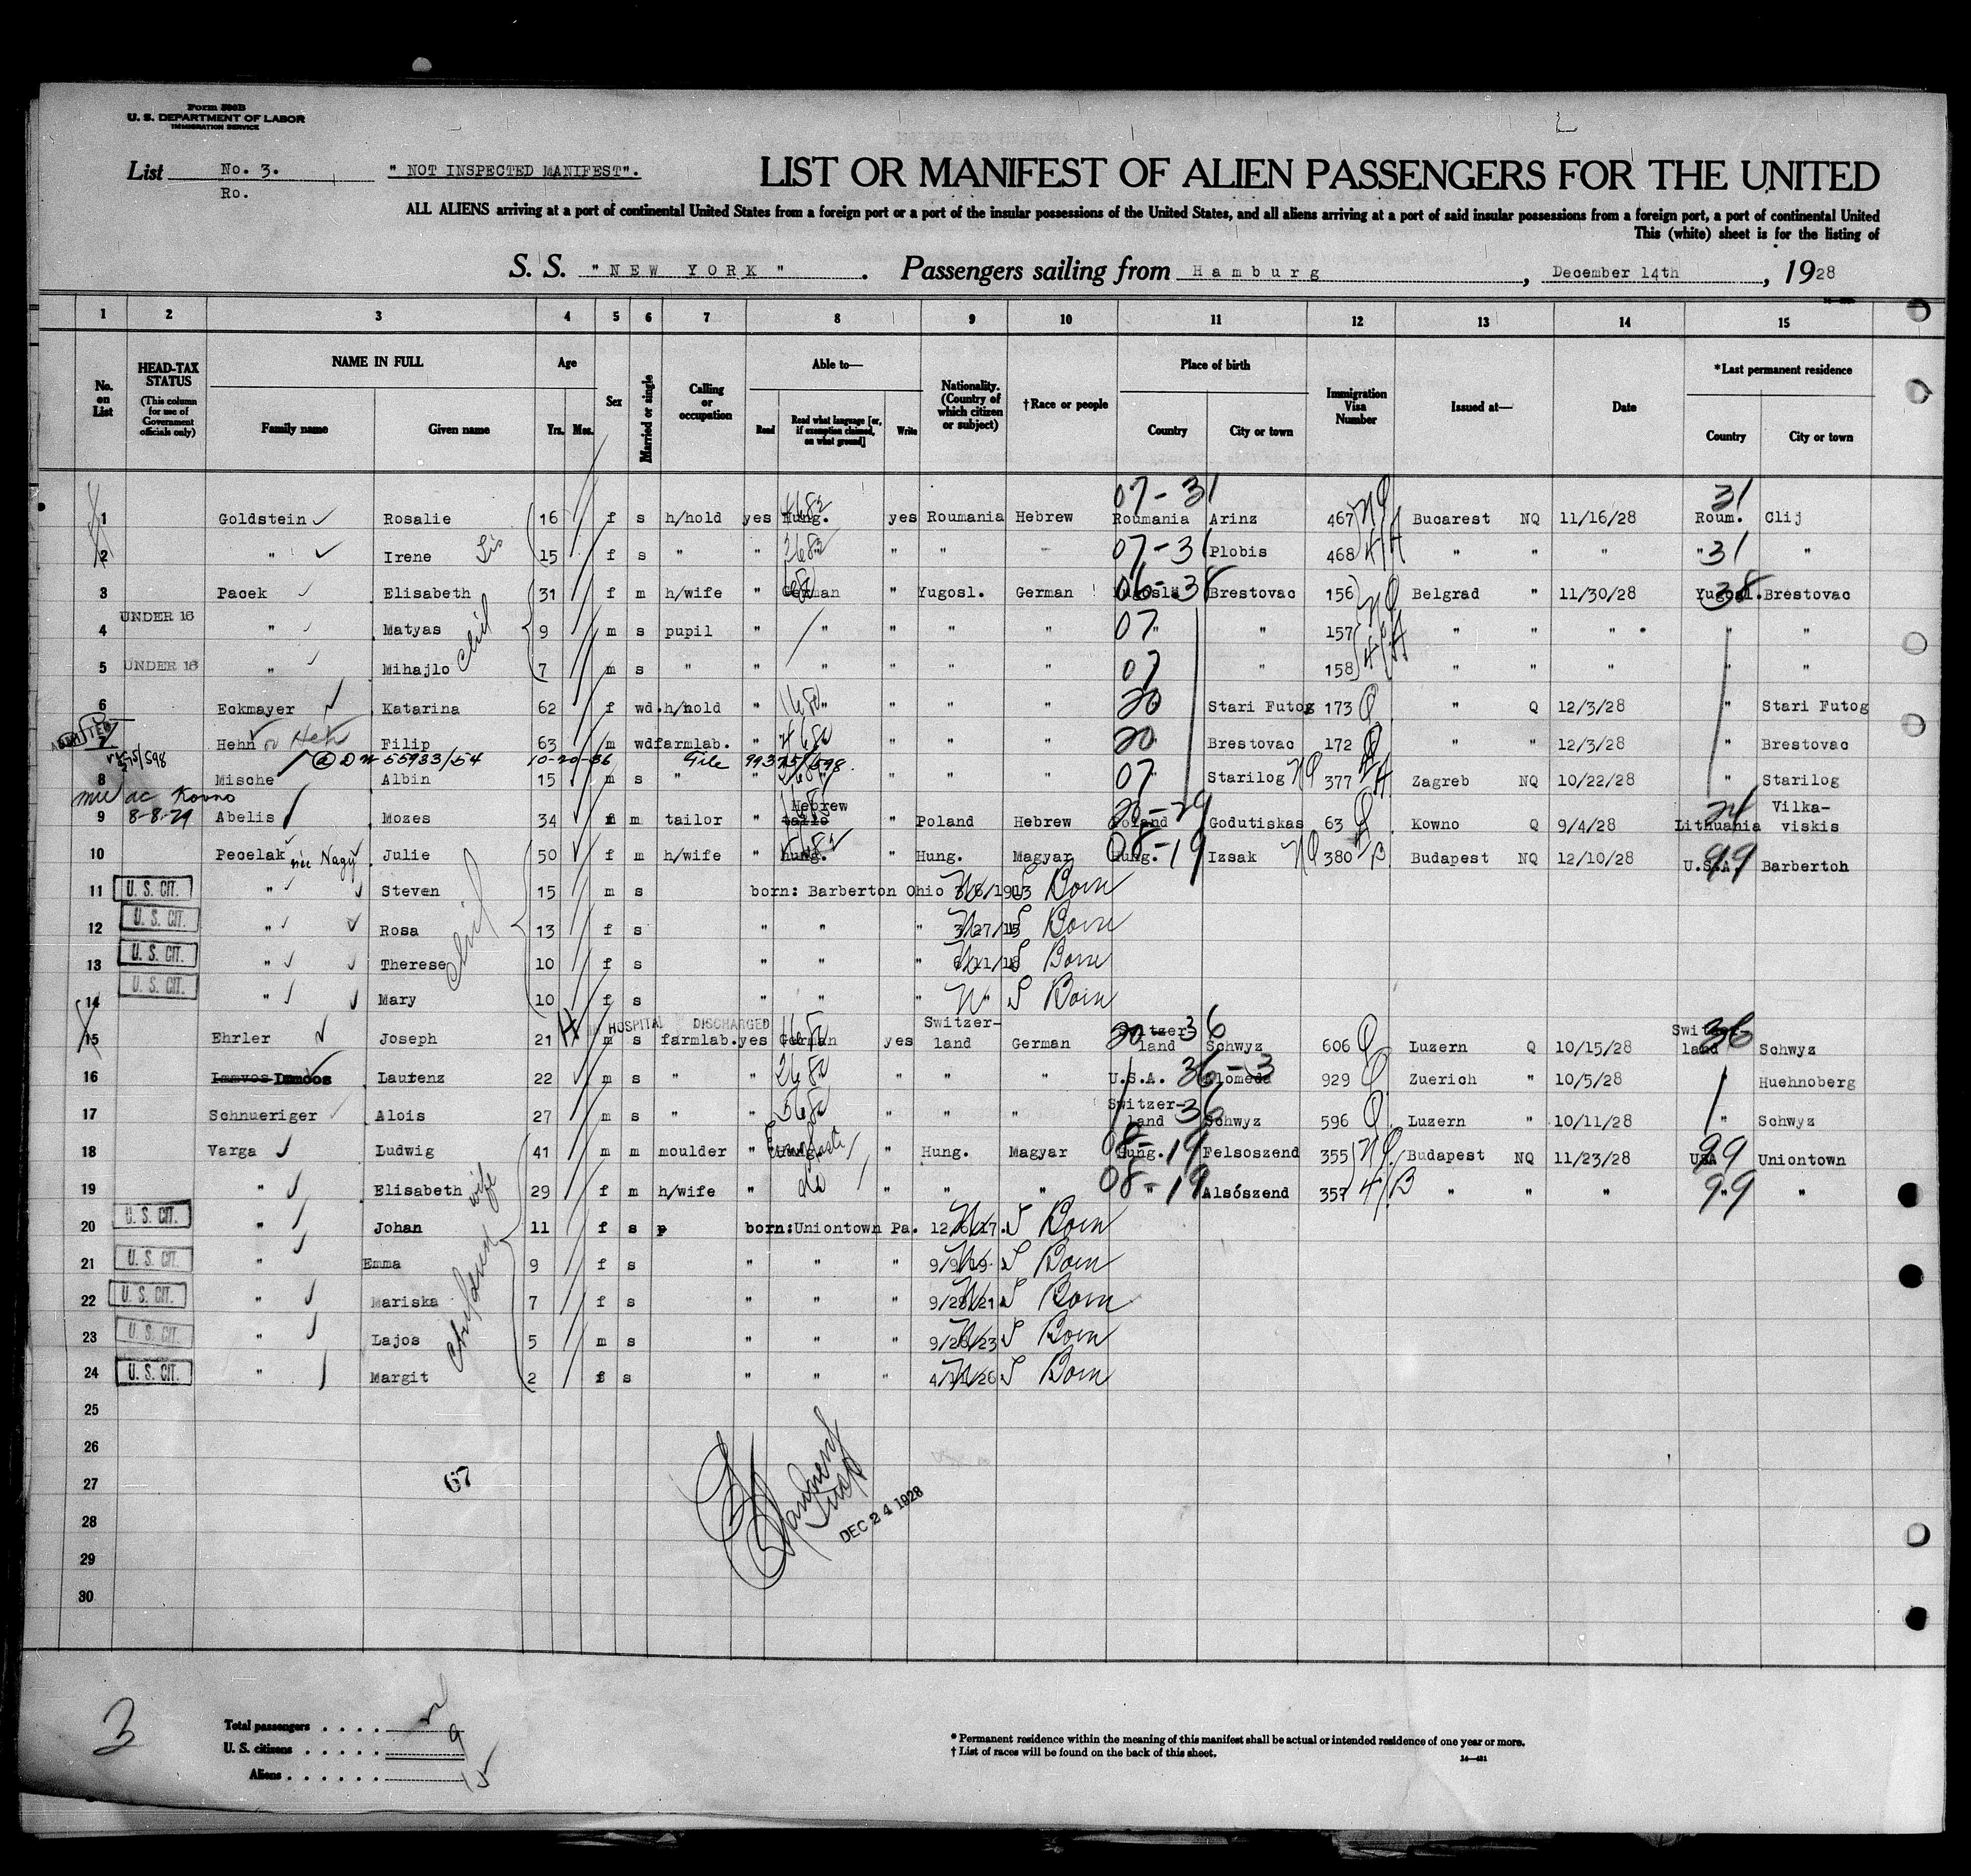 Form 500B
U. S. DEPARTMENT OF LABOR
IMMIGRATION SERVICE
List No. 3. " NOT INSPECTED MANIFEST".
Ro.
LIST OR MANIFEST OF ALIEN PASSENGERS FOR THE UNITED
ALL ALIENS arriving at a port of continental United States from a foreign port or a port of the insular possessions of the United States, and all aliens arriving at a port of said insular possessions from a foreign port, a port of continental United
This (white) sheet is for the listing of
S. S. "NEW YORK" . Passengers sailing from Hamburg , December 14th , 1928
1 2 3 4 5 6 7 8 9 10 11 12 13 14 15
No. on List
HEAD-TAX STATUS (This column for use of Government officials only)
NAME IN FULL
Family name Given name
Age
Yrs. Mos.
Sex
Married or single
Calling or occupation
Able to—
Read Read what language [or, if exemption claimed, on what ground] Write
Nationality. (Country of which citizen or subject)
†Race or people
Place of birth
Country City or town
Immigration Visa Number
Issued at—
Date
*Last permanent residence
Country City or town
07-31 31
1 Goldstein Rosalie 16 f s h/hold yes Hung. yes Roumania Hebrew Roumania Arinz 467 NQ Bucarest NQ 11/16/28 Roum. Clij
2 " Irene Sis 15 f s " " " " - 07-31 Plobis 468 " " " " 31 "
3 Pacek Elisabeth 31 f m h/wife " German " Yugosl. German 06-38 Brestovac 156 NQ Belgrad " 11/30/28 Yugosl. 38 Brestovac
UNDER 16
4 " Matyas 9 m s pupil " " " " " 07 " " 157 " " " " "
5 UNDER 16 " Mihajlo 7 m s " " " " " " 07 " 158 " " " " "
6 Eckmayer Katarina 62 f wd. h/hold " " " " " 20 Stari Futog 173 Q " Q 12/3/28 " Stari Futog
7 Hehn or Heh Filip 63 m wd farmlab. " " " " 20 Brestovac 172 " " 12/3/28 " Brestovac
55933/54 10-20-36 File 99375/598.
8 Mische Albin 15 m s " " " " " 07 Starilog NQ 377 Zagreb NQ 10/22/28 " Starilog
Kovno
9 8-8-29 Abelis Mozes 34 m tailor " Hebrew " Poland Hebrew Poland 20-29 Godutiskas 63 Kowno Q 9/4/28 Lithuania Vilka-viskis
10 Pecelak née Nagy Julie 50 f m h/wife " hung. " Hung. Magyar Hung. 08-19 Izsak NQ 380 Budapest NQ 12/10/28 U.S.A. 99 Barberton
11 U. S. CIT. " Steven 15 m s born: Barberton Ohio U S Born
12 U. S. CIT. " Rosa 13 f s " " " U S Born
13 U. S. CIT. " Therese 10 f s " " " U S Born
14 U. S. CIT. " Mary 10 f s " " " U S Born
IN HOSPITAL DISCHARGED
15 Ehrler Joseph 21 m s farmlab. yes German yes Switzer-land German Switzer-land 20 36 Schwyz 606 Q Luzern Q 10/15/28 Switzer-land 36 Schwyz
16 Immoos Laurenz 22 m s " " " " " U.S.A. 36-3 Alomeda 929 Q Zuerich " 10/5/28 " Huehnoberg
17 Schnueriger Alois 27 m s " " " " " Switzer-land 36 Schwyz 596 Q Luzern " 10/11/28 " Schwyz
18 Varga Ludwig 41 m m moulder " " Hung. Magyar Hung. 08-19 Felsoszend 355 NQ Budapest NQ 11/23/28 USA 99 Uniontown
19 " Elisabeth wife 29 f m h/wife " do " " " 08-19 " Alsószend 357 " " " 99 " "
20 U. S. CIT. " Johan 11 f s p born:Uniontown Pa. U S Born
21 U. S. CIT. " Emma 9 f s " " " 9/9/19 U S Born
22 U. S. CIT. " Mariska 7 f s " " " U S Born
23 U. S. CIT. " Lajos 5 m s " " " U S Born
24 U. S. CIT. " Margit 2 f s " " " U S Born
25
26
27 67
28 DEC 24 1928
29
30
3
Total passengers . . . .
U. S. citizens . . . . . 9
Aliens . . . . . . 15
* Permanent residence within the meaning of this manifest shall be actual or intended residence of one year or more.
† List of races will be found on the back of this sheet.